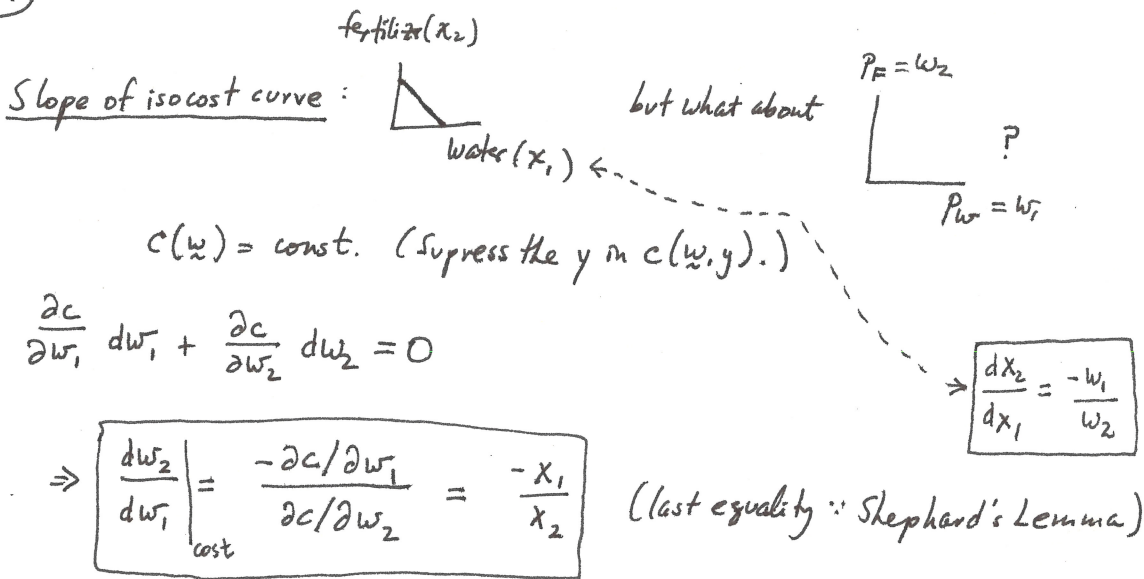 fertilizer(x₂)
P_F = w₂
Slope of isocost curve :
but what about
?
water(x₁)
P_w = w₁
c(w̰) = const. (Supress the y in c(w̰,y).)
∂c/∂w₁ dw₁ + ∂c/∂w₂ dw₂ = 0
dx₂/dx₁ = -w₁/w₂
⇒ dw₂/dw₁ |cost = -∂c/∂w₁ / ∂c/∂w₂ = -x₁/x₂ (last equality ∵ Shephard's Lemma)